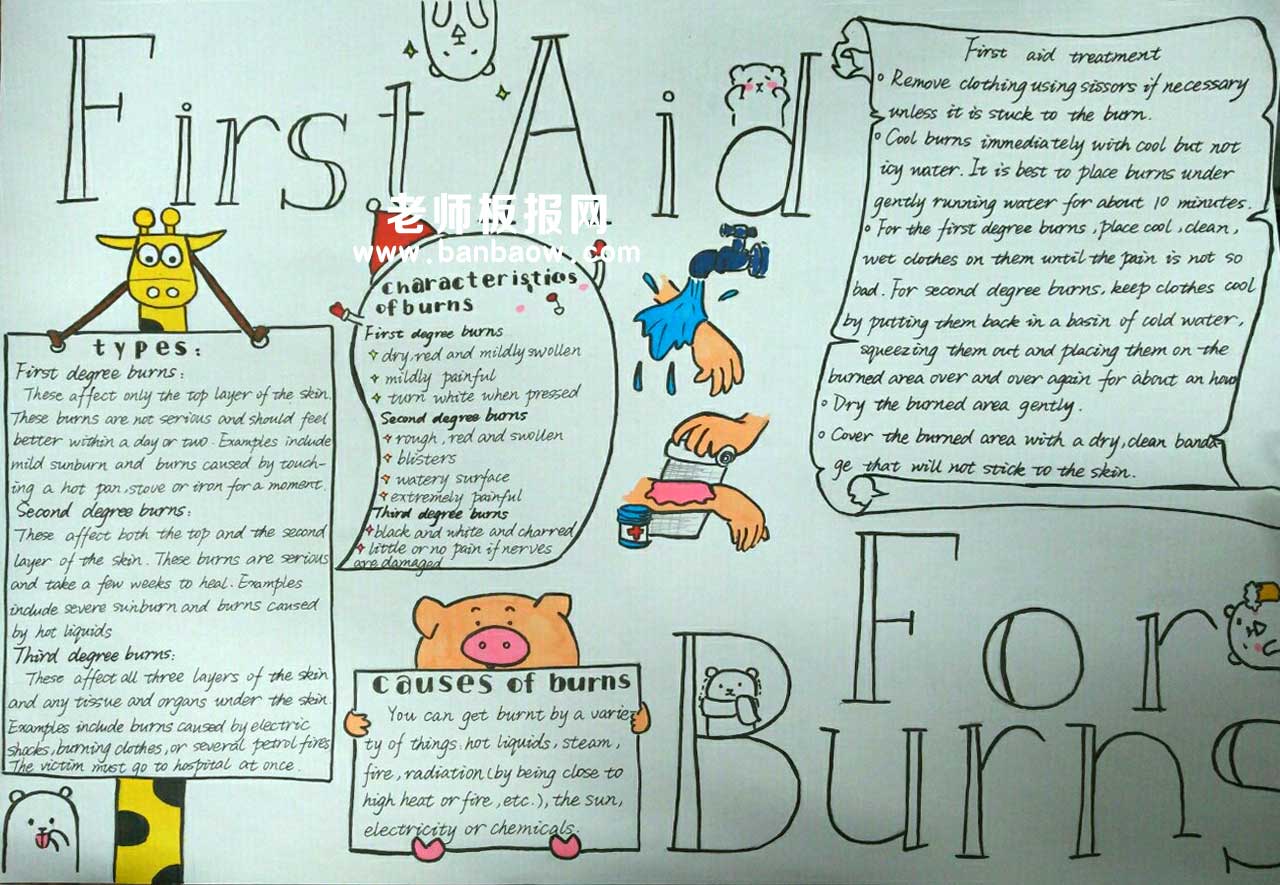 First Aid
老师板报网
www.banbaow.com
types:
First degree burns:
These affect only the top layer of the skin.
These burns are not serious and should feel
better within a day or two. Examples include
mild sunburn and burns caused by touch-
ing a hot pan, stove or iron for a moment.
Second degree burns:
These affect both the top and the second
layer of the skin. These burns are serious
and take a few weeks to heal. Examples
include severe sunburn and burns caused
by hot liquids
Third degree burns:
These affect all three layers of the skin
and any tissue and organs under the skin.
Examples include burns caused by electric
shocks, burning clothes, or several petrol fires
The victim must go to hospital at once.
characteristics
of burns
First degree burns
dry, red and mildly swollen
mildly painful
turn white when pressed
Second degree burns
rough, red and swollen
blisters
watery surface
extremely painful
Third degree burns
black and white and charred
little or no pain if nerves
are damaged
causes of burns
You can get burnt by a varie-
ty of things: hot liquids, steam,
fire, radiation (by being close to
high heat or fire, etc.), the sun,
electricity or chemicals.
First aid treatment
Remove clothing using sissors if necessary
unless it is stuck to the burn.
Cool burns immediately with cool but not
icy water. It is best to place burns under
gently running water for about 10 minutes.
For the first degree burns, place cool, clean,
wet clothes on them until the pain is not so
bad. For second degree burns, keep clothes cool
by putting them back in a basin of cold water,
squeezing them out and placing them on the
burned area over and over again for about an hour
Dry the burned area gently.
Cover the burned area with a dry, clean banda-
ge that will not stick to the skin.
For
Burns